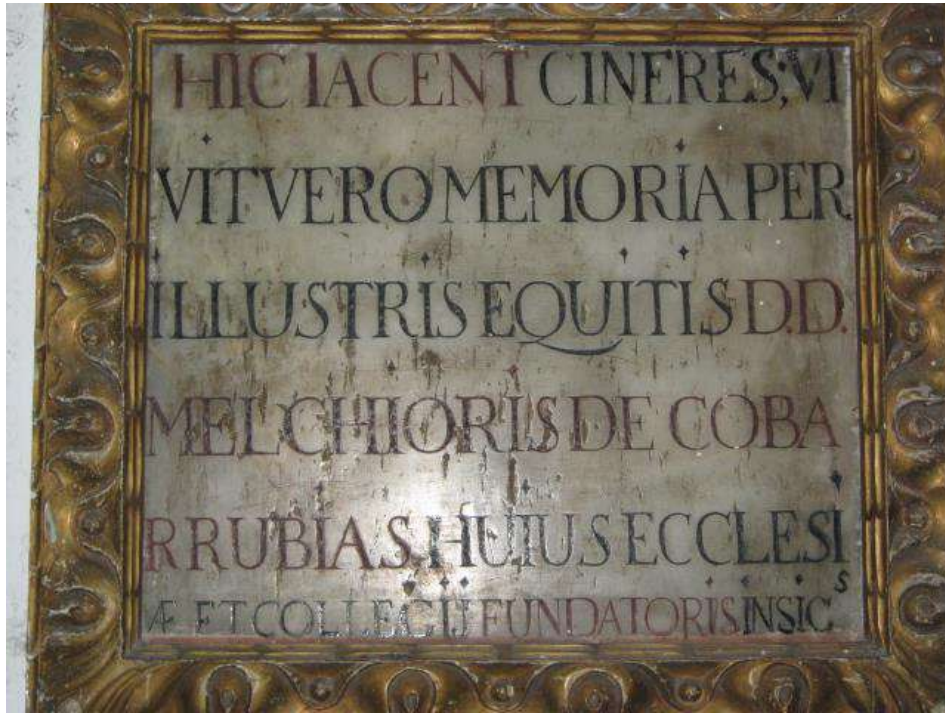 HIC IACENT CINERES; VI
VIT VERO MEMORIA PER
ILLUSTRIS EQUITIS D.D.
MELCHIORIS DE COBA
RRUBIAS, HUIUS ECCLESI
Æ ET COLLEGIJ FUNDATORIS INSIC